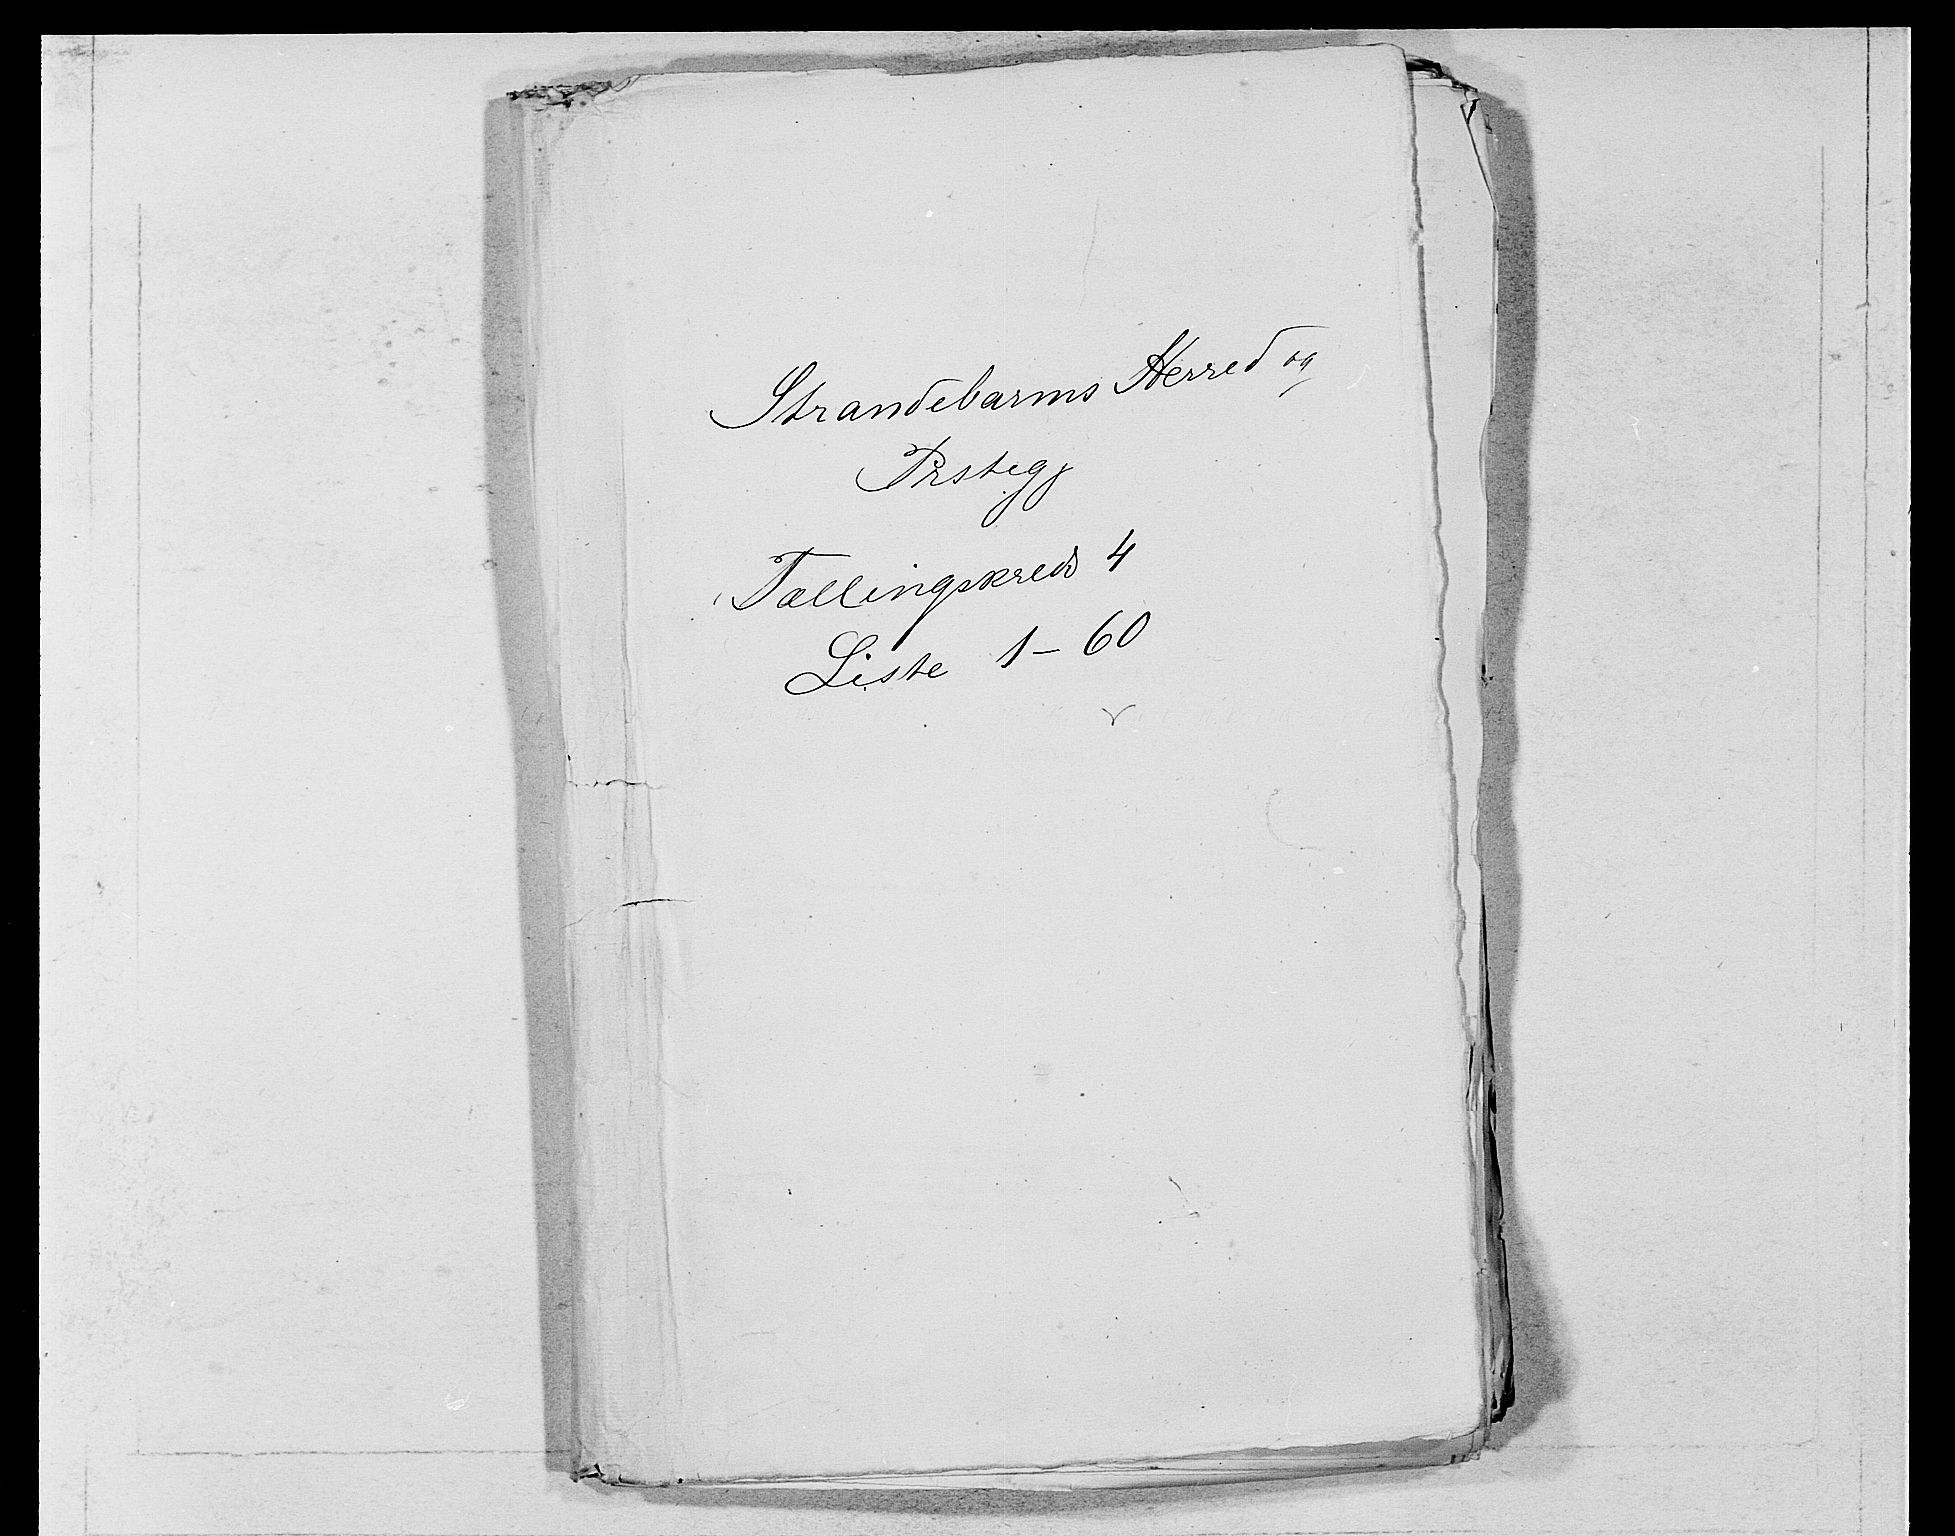 Strandebarms Herred og
Prstegj
Tællingskreds 4
Liste 1-60